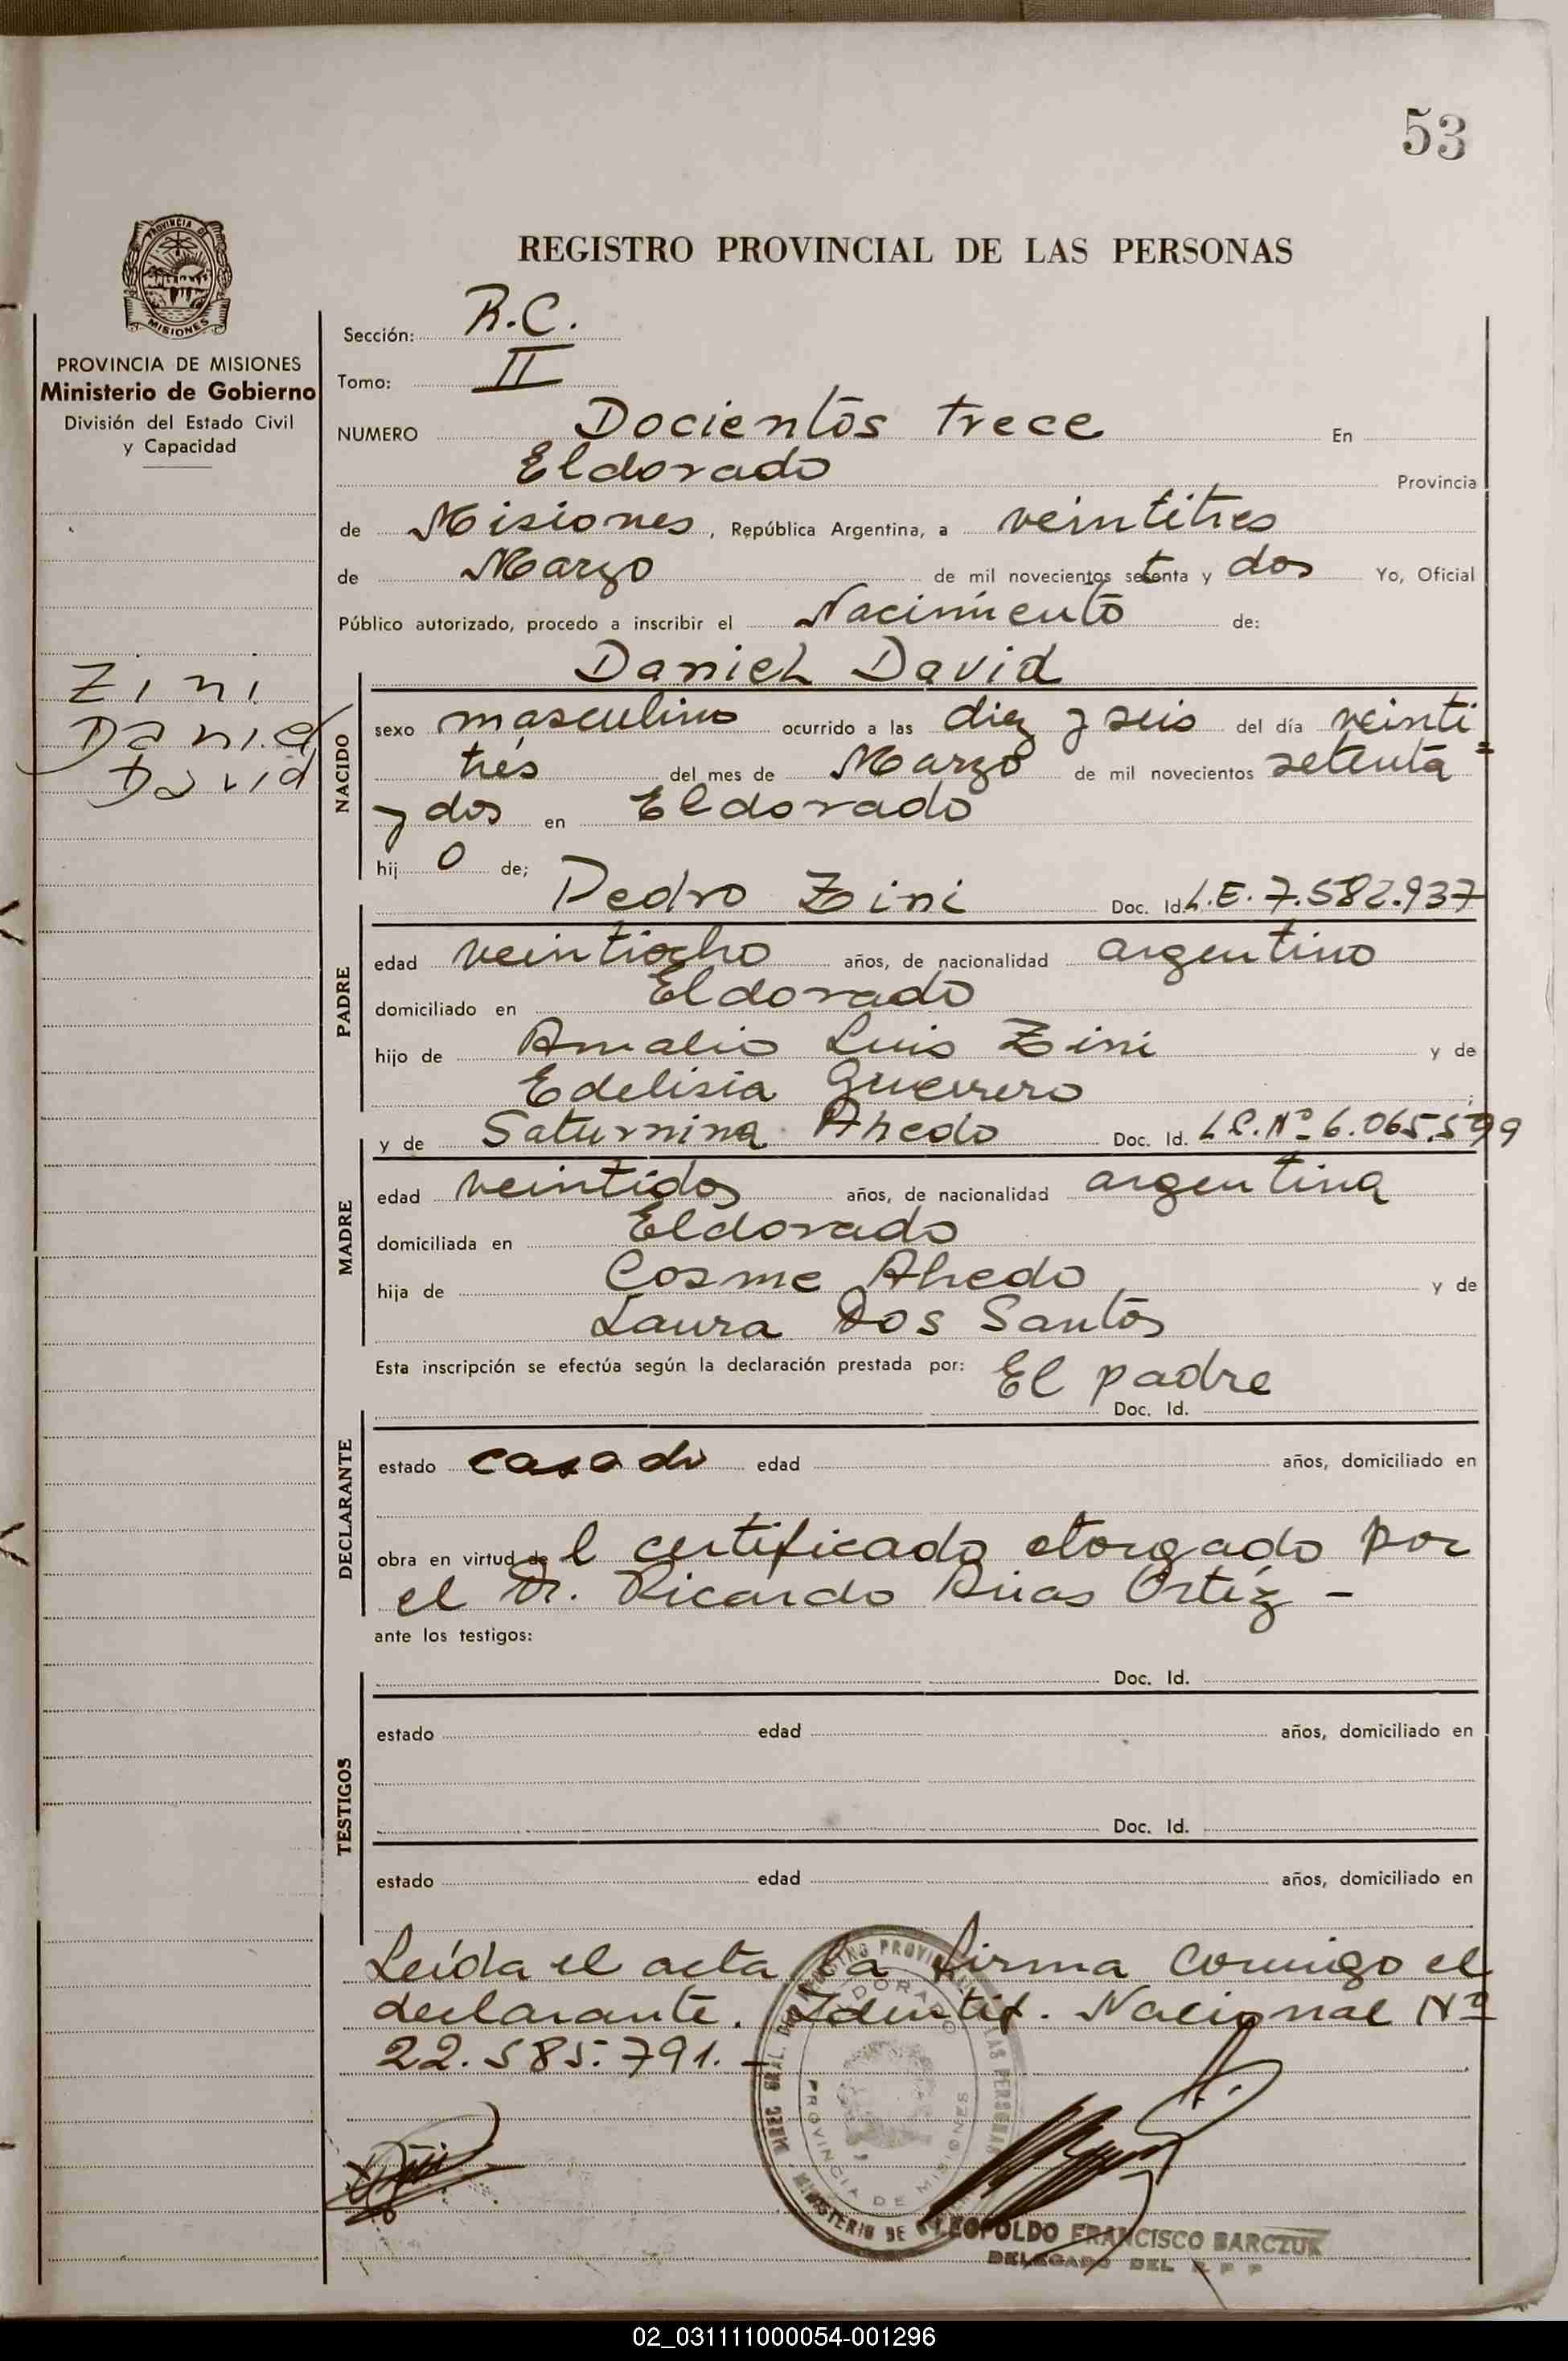 53
PROVINCIA DE
MISIONES
PROVINCIA DE MISIONES
Ministerio de Gobierno
División del Estado Civil
y Capacidad
Zini
Daniel
David
REGISTRO PROVINCIAL DE LAS PERSONAS
Sección: R.C.
Tomo: II
NUMERO Docientos trece En
Eldorado Provincia
de Misiones, República Argentina, a veintitres
de Marzo de mil novecientos setenta y dos Yo, Oficial
Público autorizado, procedo a inscribir el Nacimiento de:
Daniel David
NACIDO
sexo masculino ocurrido a las diez y seis del día veinti=
trés del mes de Marzo de mil novecientos setenta
y dos en Eldorado
hij o de;
Pedro Zini Doc. Id. L.E. 7.582.937
PADRE
edad veintiocho años, de nacionalidad argentino
domiciliado en Eldorado
hijo de Amalio Luis Zini y de
Edelisia Guerrero;
y de Saturnina Ahedo Doc. Id. L.C. Nº 6.065.599
MADRE
edad veintidos años, de nacionalidad argentina
domiciliada en Eldorado
hija de Cosme Ahedo y de
Laura Dos Santos
Esta inscripción se efectúa según la declaración prestada por: El padre
Doc. Id.
DECLARANTE
estado casado edad años, domiciliado en
obra en virtud de l certificado otorgado por
el Dr. Ricardo Arias Ortíz -
ante los testigos:
Doc. Id.
TESTIGOS
estado edad años, domiciliado en
Doc. Id.
estado edad años, domiciliado en
Leída el acta la firma conmigo el
declarante. Identif. Nacional Nº
22.585.791.-
DIREC. GRAL. DEL REGISTRO PROVINCIAL DE LAS PERSONAS
ELDORADO
PROVINCIA DE MISIONES
MINISTERIO DE
LEOPOLDO FRANCISCO BARCZUK
DELEGADO DEL R P P
02_031111000054-001296